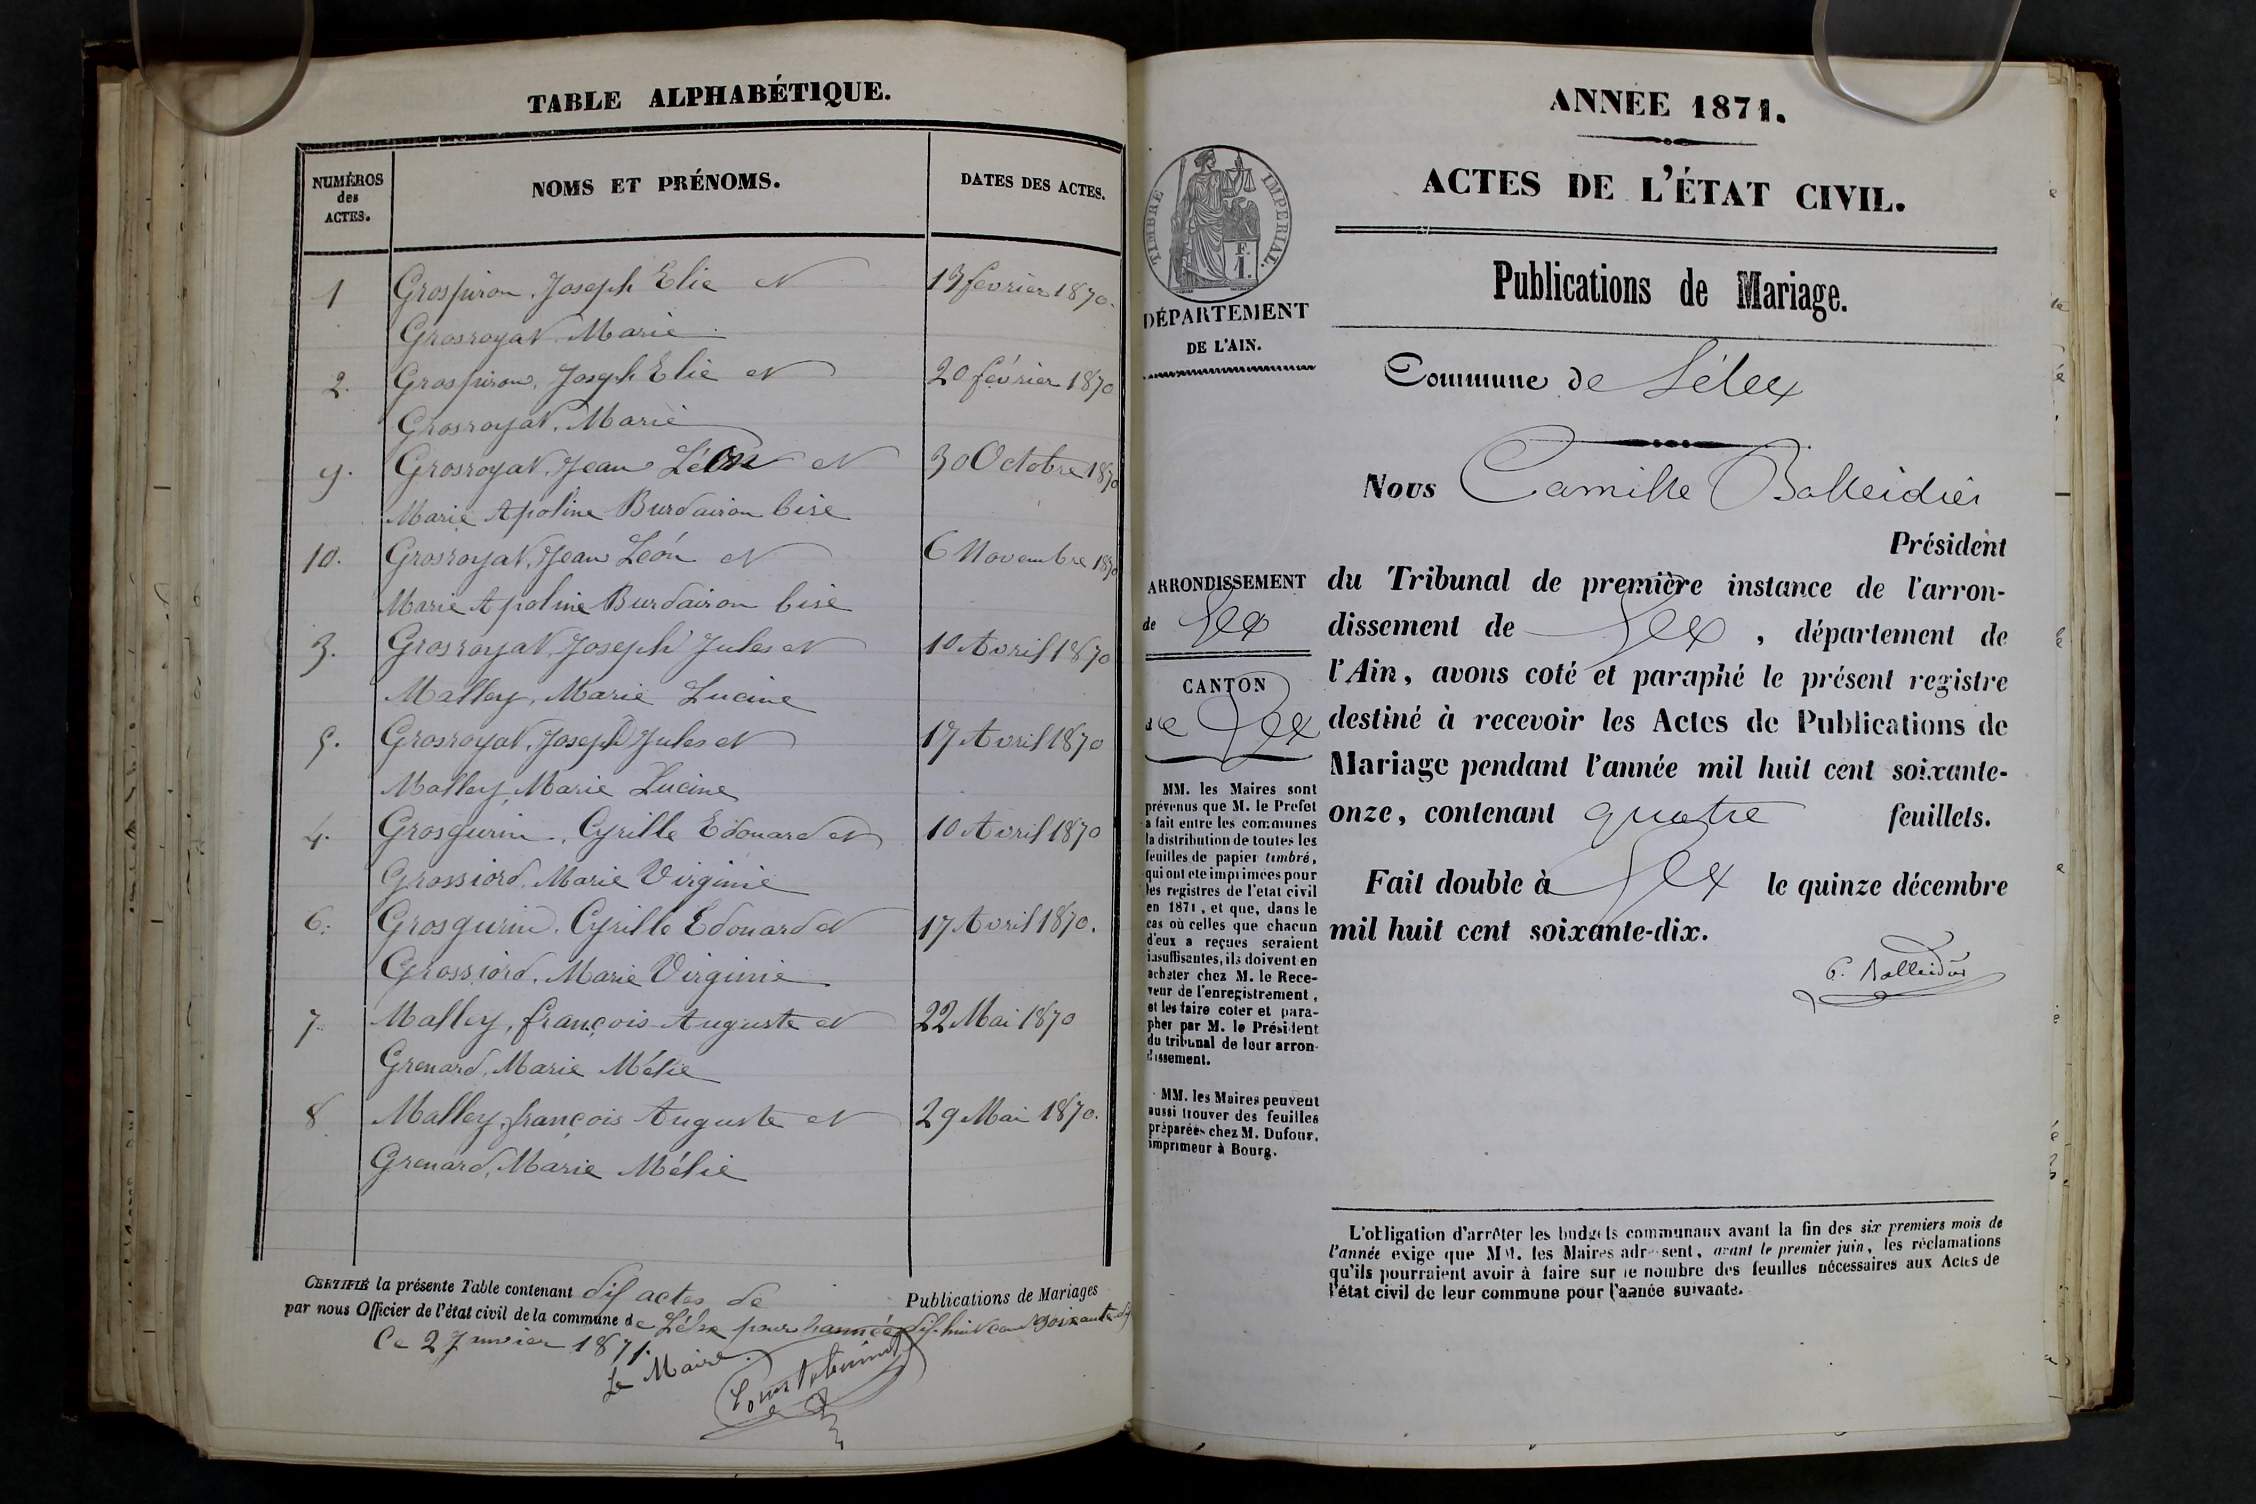 TABLE ALPHABÉTIQUE.
NUMÉROS des ACTES.
NOMS ET PRÉNOMS.
DATES DES ACTES.
1 Grospiron, Joseph Elie et 13 fevrier 1870.
Grosroyat Marie
2. Grospiron, Joseph Elie et 20 février 1870
Grosroyat, Marie
9. Grosroyat, Jean Léon et 30 Octobre 1870
Marie Apoline Burdairon bise
10. Grosroyat, Jean León et 6 Novembre 1870
Marie Apoline Burdairon bise
3. Grosroyat, Joseph Jules et 10 Avril 1870
Malley, Marie Lucine
5. Grosroyat, Joseph Jules et 17 Avril 1870
Malley, Marie Lucine
4. Grosgurin, Cyrille Edouard et 10 Avril 1870
Grossiord, Marie Virginie
6. Grosgurin, Cyrille Edouard et 17 Avril 1870.
Grossiord, Marie Virginie
7. Malley, françois Auguste et 22 Mai 1870
Grenard, Marie Mélie
8 Malley, françois Auguste et 29 Mai 1870.
Grenard, Marie Mélie
CERTIFIÉ la présente Table contenant dix actes de Publications de Mariages
par nous Officier de l'état civil de la commune de Lélex pour l'année dix-huit cent soixante dix
Ce 2 Janvier 1871.
Le Maire.
ANNÉE 1871.
ACTES DE L'ÉTAT CIVIL.
TIMBRE IMPERIAL.
F.
1.
DÉPARTEMENT
DE L'AIN.
Publications de Mariage.
Commune de Lélex
Nous Camille Balleidier
Président
ARRONDISSEMENT
de Gex
CANTON
de Gex
du Tribunal de première instance de l'arron-
dissement de Gex, département de
l'Ain, avons coté et paraphé le présent registre
destiné à recevoir les Actes de Publications de
Mariage pendant l'année mil huit cent soixante-
onze, contenant quatre feuillets.
Fait double à Gex le quinze décembre
mil huit cent soixante-dix.
C. Balleidier
MM. les Maires sont
prévenus que M. le Prefet
a fait entre les communes
la distribution de toutes les
feuilles de papier timbré,
qui ont ete imprimees pour
les registres de l'etat civil
en 1871, et que, dans le
cas où celles que chacun
d'eux a reçues seraient
insuffisantes, ils doivent en
acheter chez M. le Rece-
veur de l'enregistrement,
et les faire coter et para-
pher par M. le Président
du tribunal de leur arron-
dissement.
MM. les Maires peuvent
aussi trouver des feuilles
préparées chez M. Dufour,
imprimeur à Bourg.
L'obligation d'arrêter les budgets communaux avant la fin des six premiers mois de
l'année exige que MM. les Maires adressent, avant le premier juin, les réclamations
qu'ils pourraient avoir à faire sur le nombre des feuilles nécessaires aux Actes de
l'état civil de leur commune pour l'année suivante.